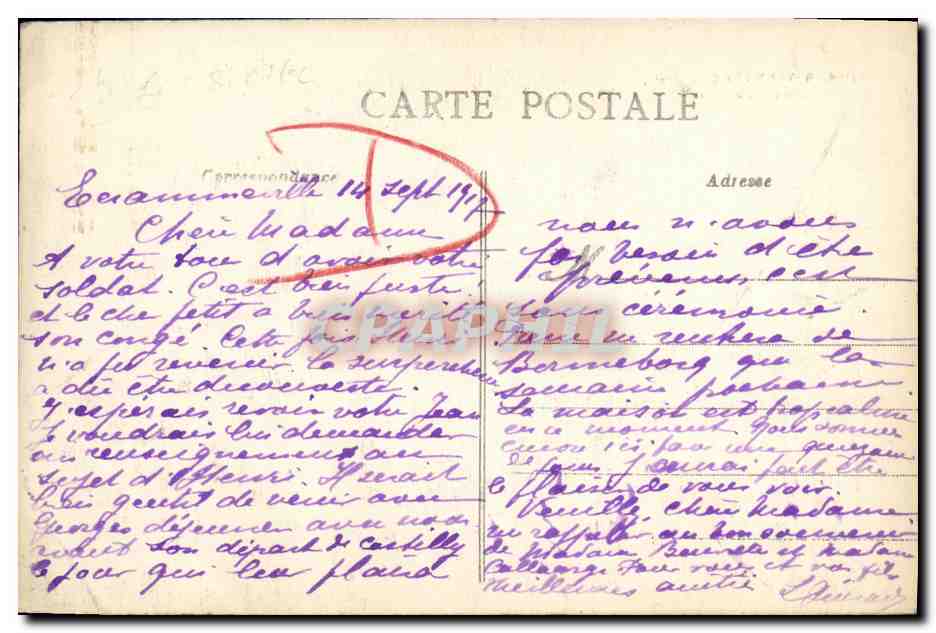 CARTE POSTALE
Correspondance
Adresse
D
Ecrammeville 14 Sept 1917
Chère Madame
A votre tour d'avoir votre
soldat. C'est bien juste,
et le cher petit a bien mérité
son congé. Cette fois
n'a pu revenir la supercherie
a dû être découverte.
J'espérais revoir votre Jean
Je voudrais lui demander
un renseignement au
sujet d'Henri. Il serait
bien gentil de venir avec
Georges déjeuner avec nous
avant son départ de Castilly
le jour qui leur plaira
nous n'avons
pas besoin d'être
prévenus, c'est
sans cérémonie.
ne rentrera de
que la
semaine prochaine
La maison est
en ce moment. Nous sommes
encore ici pour une quinzaine
de jours J'aurai peut être
le plaisir de vous voir.
Veuillez chère Madame
me rappeler au bon souvenir
de Madame et Madame
Pour vous et vos fils
meilleures amitiés
CPAPHIL